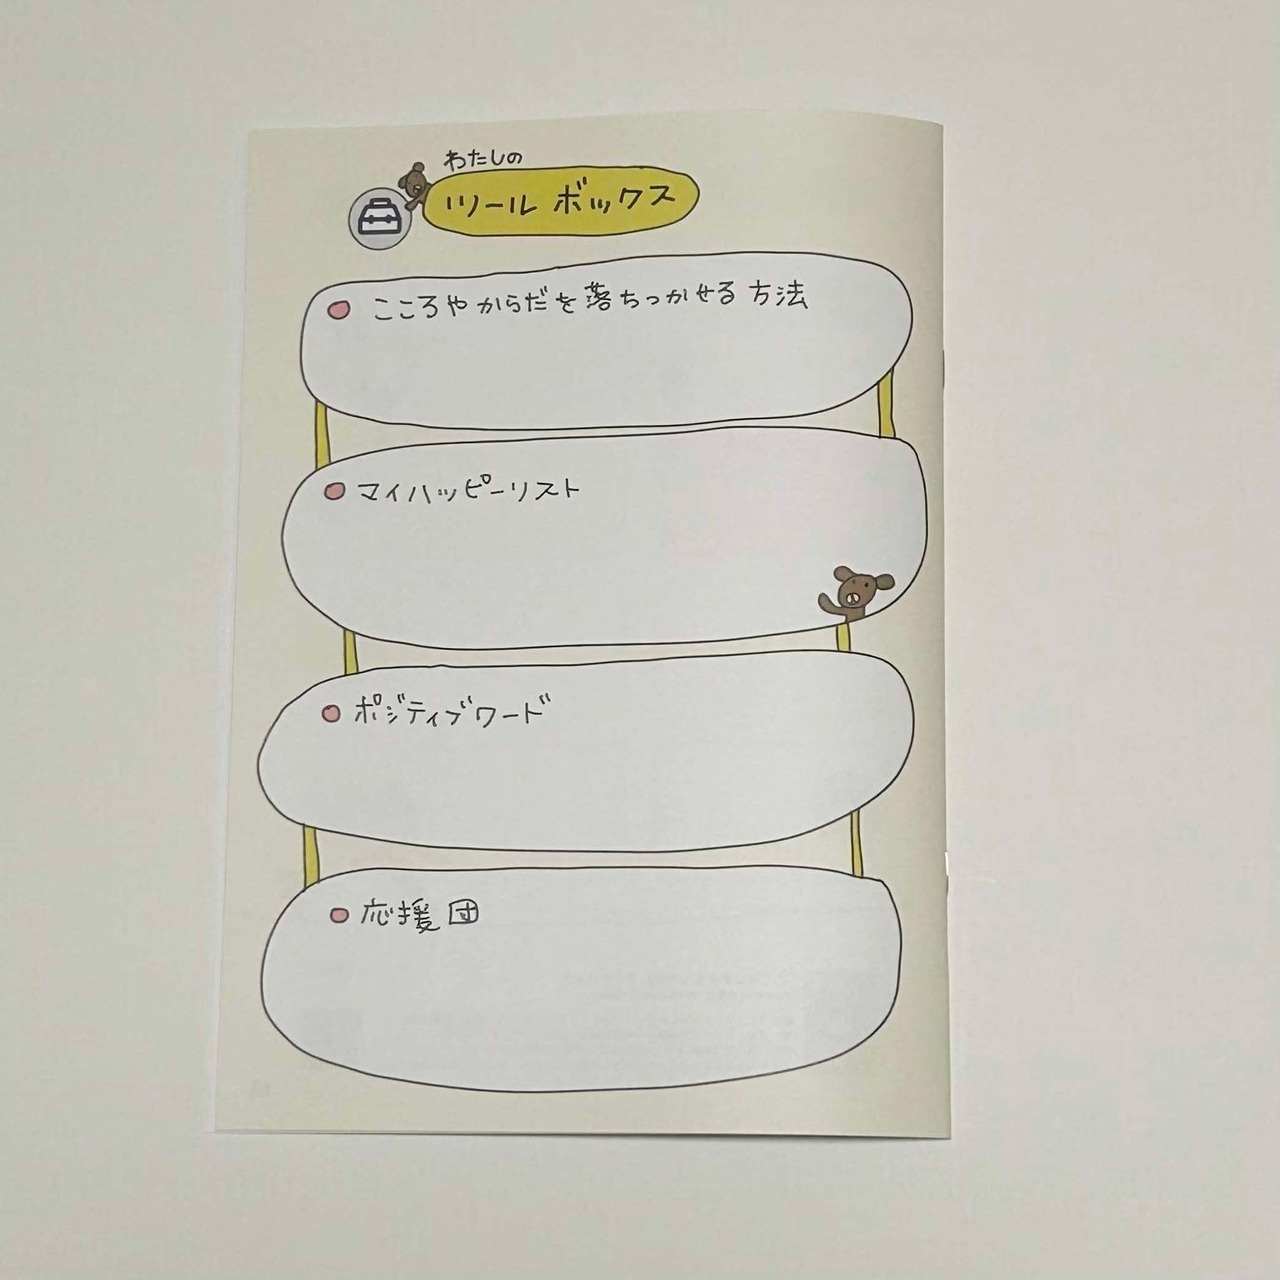 わたしの
ツールボックス
こころやからだを落ちつかせる方法
マイハッピーリスト
ポジティブワード
応援団